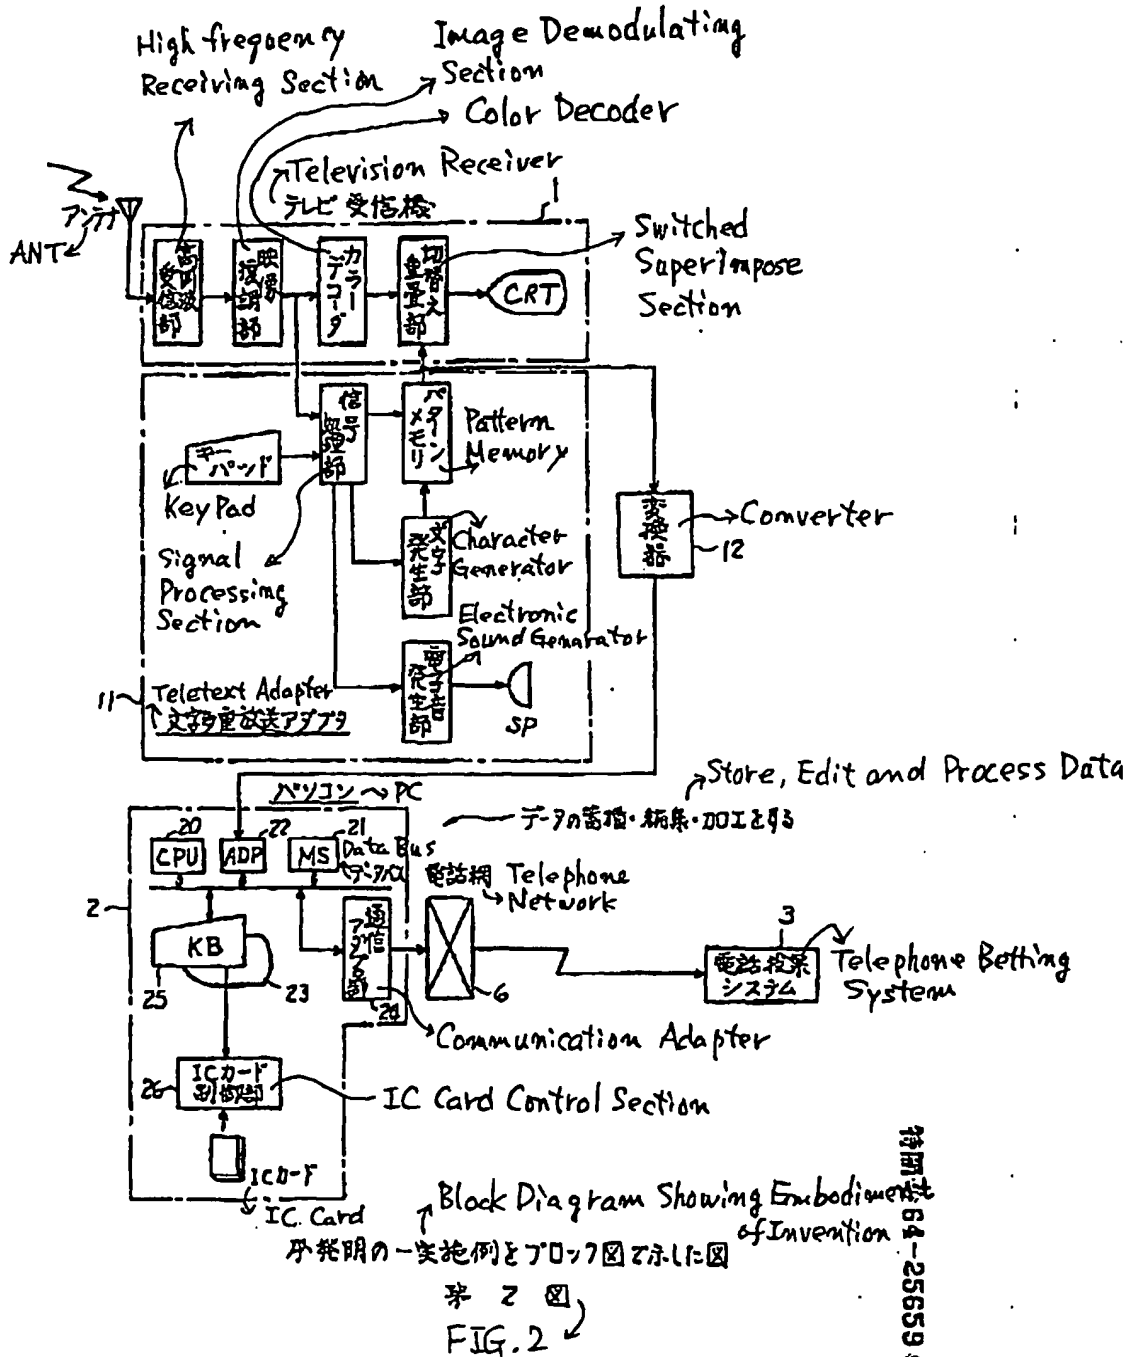 High frequency
Receiving Section
Image Demodulating
Section
Color Decoder
Television Receiver
テレビ受信機
1
アンテナ
ANT
高周波
受信部
映像
復調部
カラー
デコーダ
切替え
重畳部
CRT
Switched
Superimpose
Section
信号
処理部
パターン
メモリ
Pattern
Memory
キー
パッド
Key Pad
Signal
Processing
Section
文字
発生部
Character
Generator
変換部
Converter
12
Electronic
Sound Genarator
電子音
発生部
SP
11
Teletext Adapter
文字多重放送アダプタ
パソコン
PC
Store, Edit and Process Data
データの蓄積・編集・加工をする
20
22
21
CPU
ADP
MS
Data Bus
データバス
電話網
Telephone
Network
2
KB
25
23
通信
アダプタ部
24
6
3
電話投票
システム
Telephone Betting
System
Communication Adapter
ICカード
制御部
26
IC Card Control Section
ICカード
IC. Card
Block Diagram Showing Embodiment
of Invention
本発明の一実施例をブロック図で示した図
第 2 図
FIG. 2
特開昭64-25659